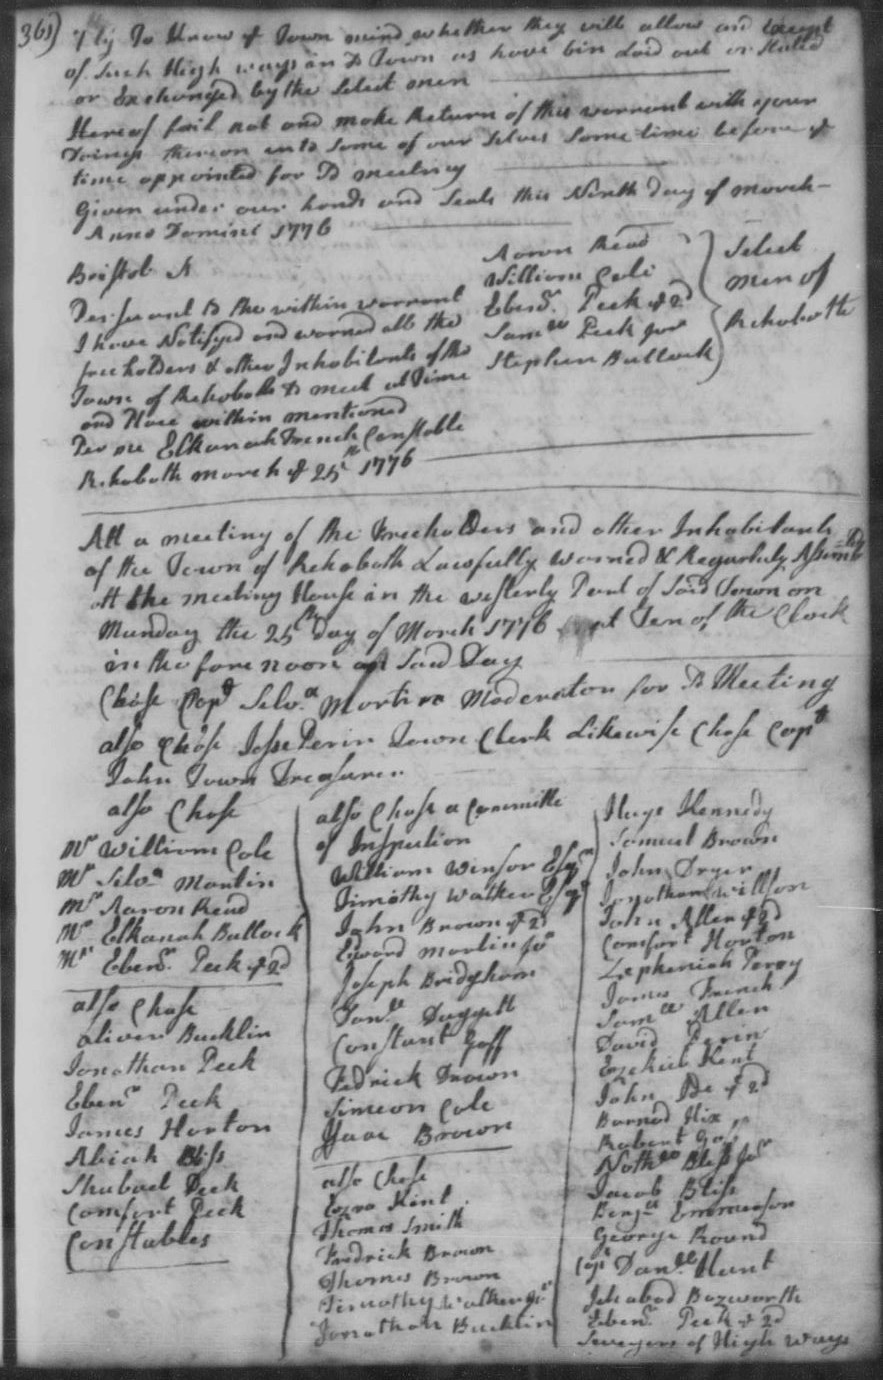 361)
ly To Know ye Town mind whether they will allow and Except
of Such High ways in sd Town as have bin Laid out or Stated
or Exchanged by the Select men
Hereof fail not and make Return of this warrant with your
Doings thereon unto Some of our Selves Some time before ye
time appointed for sd meeting
Given under our hands and Seals this Ninth Day of march
Anno Domini 1776
Aaron Read
William Cole
Ebenr. Peck ye 2d
Samll Peck jur
Stephen Bullock
Select
men of
Rehoboth
Bristol
Persuant to the within warrant
I have Notifyed and warned all the
freeholders & other Inhabitants of the
Town of Rehoboth to meet at Time
and Place within mentioned
Per me Elkanah French Constable
Rehoboth march ye 25th 1776
Att a meeting of the Freeholders and other Inhabitants
of the Town of Rehoboth Lawfully warned & Regarluly Assembled
att the meeting House in the westerly Part of Said Town on
Munday the 25th Day of March 1776 at Ten of the Clock
in the fore noon Said Day
Chose Capt Selva. Martin Moderator for sd Meeting
also Chose Jesse Perin Town Clerk Likewise Chose Capt
John Town Treasurer
also Chose
Mr William Cole
Mr Silva. Martin
Mr Aaron Read
Mr Elkanah Bullock
Mr Ebenr. Peck ye 2d
also Chose
oliver Bucklin
Jonathan Peck
Ebenr Peck
James Horton
Abiah Bliss
Shubael Peck
Comfort Peck
Constables
also Chose a Committe
of Inspection
William Winsor Esqr
Timothy Walker Esqr
John Brown ye 2d
Edward martin jur
Joseph Bridgham
Danll Daggett
Constant Goff
Fedrick Drown
Simeon Cole
Isaac Brown
also Chose
Ezra Kint
Thomas Smith
Fredrick Brown
Thomas Brown
Timothy Walker jur
Jonathan Bucklin
Huge Kennedy
Samuel Brown
John Dryer
Jonathan Willson
John Allen ye 2d
Comfort Horton
Zepheniah Perry
James French
Samll Allen
David Perin
Ezekiel Kent
John ye 2d
Barnad Hix
Robert
Nathll Bliss jur
Jacob Bliss
Benja Emmerson
George Round
Capt Danll Hunt
Ichabod Bozworth
Ebenr Peck ye 2d
Surveyers of High ways